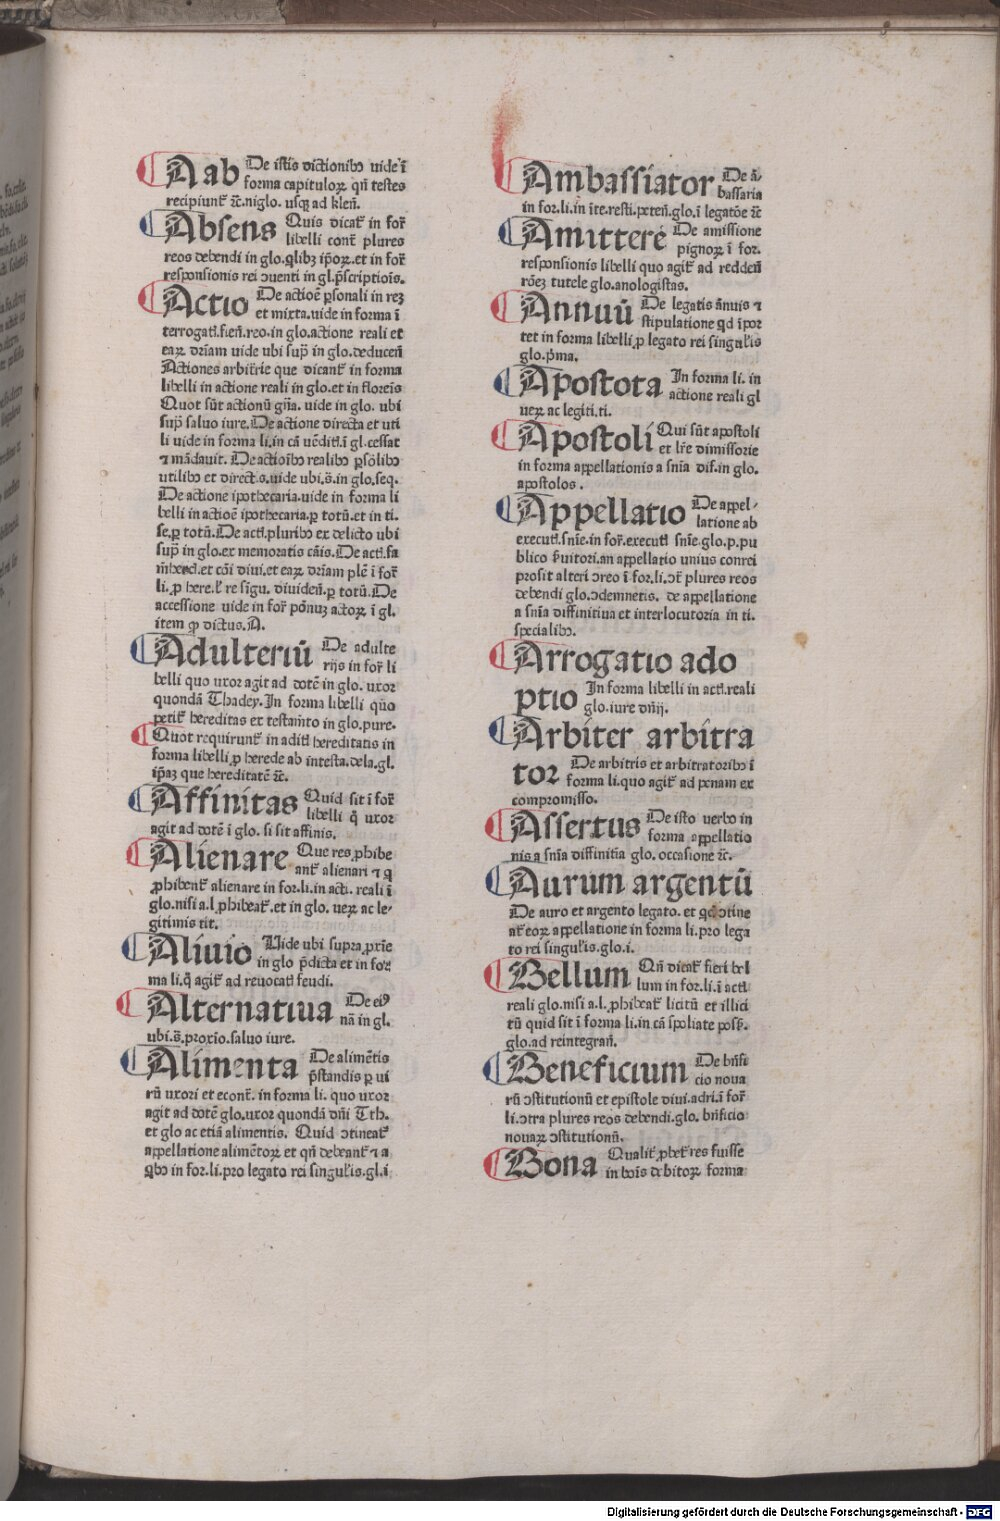 A ab De istis dictionibꝰ uide ī
forma capituloꝝ qn̄ testes
recipiunt᷑ ⁊c̄. niglo. usqꝫ ad kleñ.
Absens Quis dicat᷑ in for̄
libelli cont᷑ plures
reos debendi in glo. q̄libꝫ ip̄oꝝ. et in for̄
responsionis rei ɔuenti in gl. p̄scriptiōis.
Actio De actiōe p̱sonali in reꝫ
et mixta. uide in forma ī
terrogatī. fieñ. reo. in glo. actione reali et
eaꝝ dr̄iam uide ubi sup̄ in glo. deduceñ
Actiones arbitr̄ie que dicant᷑ in forma
libelli in actione reali in glo. et in florēis
Quot sūt actionū gn̄a. uide in glo. ubi
sup̄ saluo iure. De actione directa et uti
li uide in forma li. in cā uēditī. ī gl. cessat
⁊ mādauit. De actiōibꝰ realibꝰ p̱sōlibꝰ
utilibꝰ et direct.s. uide ubi. s̄. in glo. seq.
De actione ipothecaria. uide in forma li
belli in actiōe ipothecaria. p̱ totū. et in ti.
se. p̱ totū. De actī. pluribꝰ ex delicto ubi
sup̄ in glo. ex memoratis cāis. De actī. fa
m̄herd. et cōi diui. et eaꝝ dr̄iam plē ī for̄
li. ꝓ here. ł re sīgu. diuideñ. p̱ totū. De
accessione uide in for̄ pōnuꝫ actoꝝ ī gl.
item ꝙ dictus. A.
Adulteriū De adulte
rijs in for̄ li
belli quo uxor agit ad dotē in glo. uxor
quondā Thadey. In forma libelli quo
petit᷑ hereditas ex testam̄to in glo. pure.
Quot requirunt᷑ in aditī hereditatis in
forma libelli ꝓ herede ab intesta. dela. gl.
ip̄aꝫ que hereditatē ⁊c̄.
Affinitas Quid sit ī for̄
libelli q̄ uxor
agit ad dotē ī glo. si sit affinis.
Alienare Que res ꝓhibe
ant᷑ alienari ⁊ q̄
ꝓhibent᷑ alienare in for. li. in actī. reali ī
glo. nisi a. l. ꝓhibeat᷑. et in glo. ueꝝ ac le⸗
gitimis tit.
Aliuio Uide ubi supra ꝓxīe
in glo p̄dicta et in for
ma li. q̄ agit᷑ ad reuocatī feudi.
Alternatiua De eiꝰ
nā in gl.
ubi. s̄. proxīo. saluo iure.
Alimenta De alimētis
p̄standis p̱ ui
rū uxori et econt᷑. in forma li. quo uxor
agit ad dotē glo. uxor quondā dn̄i Th.
et glo ac etiā alimentis. Quid ɔtineat᷑
appellatione alimētoꝝ et qn̄ debeant᷑ ⁊ a
qͦbꝰ in for. li. pro legato rei singularis. gl. i
Ambassiator De ā⸗
bassaria
in for. li. in īte. resti. p̱teñ. glo. ī legatōe ⁊c̄
Amittere De amissione
pignoꝝ ī for.
responsionis libelli quo agit᷑ ad reddeñ
rōeꝫ tutele glo. anologistas.
Annuū De legatis ānuis ⁊
stipulatione qd īpor
tet in forma libelli ꝓ legato rei singularis
glo. p̄ma.
Apostota In forma li. in
actione reali gl
ueꝝ ac legiti. ti.
Apostoli Qui sūt apostoli
et lr̄e dimissorie
in forma appellationis a sn̄ia dif. in glo.
apostolos.
Appellatio De appel⸗
latione ab
executī. sn̄ie. in for̄. executī sn̄ie. glo. p. pu
blico p̄uitori. an appellatio unius conrei
prosit alteri ɔreo ī for. li. ɔt᷑ plures reos
debendi glo. ɔdemnetis. de appellatione
a sn̄ia diffinitiua et interlocutoria in ti.
specialibꝰ.
Arrogatio ado
ptio In forma libelli in actī. reali
glo. iure dn̄ij.
Arbiter arbitra
tor De arbitris et arbitratoribꝰ ī
forma li. quo agit᷑ ad penam ex
compromisso.
Assertus De isto uerbo in
forma appellatio
nis a sn̄ia diffinitīa glo. occasione ⁊c̄.
Aurum argentū
De auro et argento legato. et qd ɔtine
at᷑ eoꝝ appellatione in forma li. pro lega
to rei singularis. glo. i.
Bellum Qn̄ dicat᷑ fieri bel
lum in for. li. ī actī
reali glo. nisi a. l. ꝓhibeat᷑ licitū et illici
tū quid sit ī forma li. in cā spoliate poss̄.
glo. ad reintegrañ.
Beneficium De bn̄fi
cio noua
rū ɔstitutionū et epistole diui. adri. ī for̄
li. ɔtra plures reos debendi. glo. bn̄ficio
nouaꝝ ɔstitutionū.
Bona Qualit᷑ ꝓbet᷑ res fuisse
in bōis debitoꝝ forma
Digitalisierung gefördert durch die Deutsche Forschungsgemeinschaft - DFG